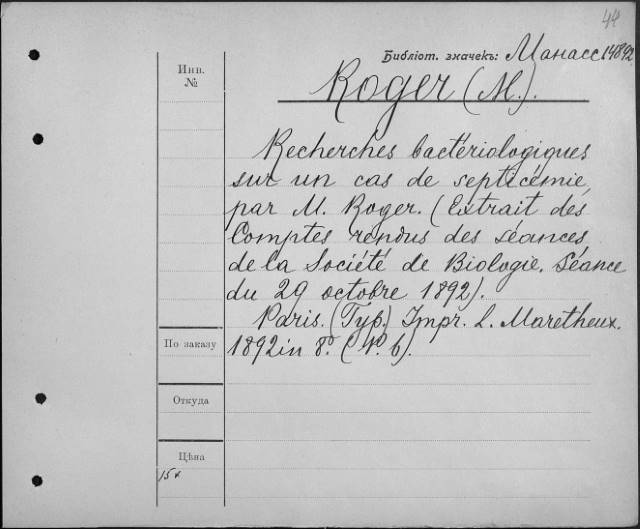 44
Библіот. значекъ: Манасс 14892
Инв.
№
Roger (M.).
Recherches bactériologiques
sur un cas de septicémie,
par M. Roger. (Extrait des
Comptes rendus des séances
de la Société de Biologie. Séance
du 29 octobre 1892).
Paris. (Typ.) Impr. L. Maretheux.
1892 in 8º. (№. 6).
По заказу
Откуда
Цѣна
15к